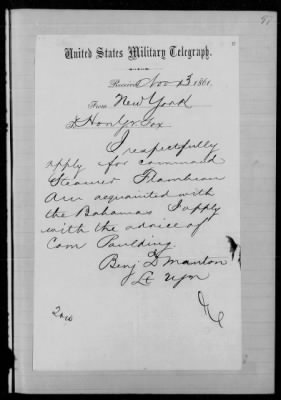 United States Military Telegraph.
Received Nov 13 1861.
From New York
Hon G. V. Fox
I respectfully
apply for command
Steamer Flambeau
Am acquainted with
the Bahamas I apply
with the advice of
Com Paulding.
Benj D Manton
Lt